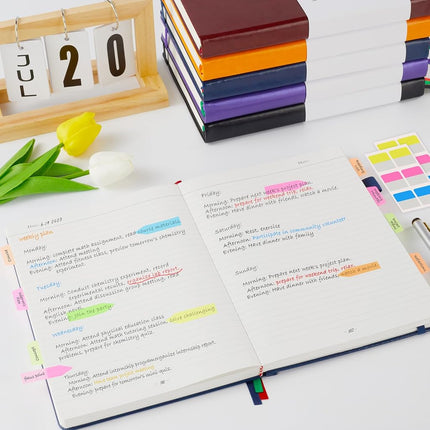 JUL
20
weekly plan
Monday:
Morning: Complete math assignment, read sports materials
Afternoon: Attend math tutoring
Evening: Attend fitness class, preview tomorrow's chemistry
experiment.
Tuesday:
Morning: Conduct chemistry experiment, record
experiments, results, organize lab report.
Afternoon: Attend discussion group meeting,
English
Evening: Join the party
Wednesday:
Morning: Attend physical education class
Afternoon: Attend math tutoring session, solve challenging
problems, prepare for chemistry quiz.
Thursday:
Morning: Attend internship internship report.
Afternoon: Hold team project meeting
Evening: prepare for tomorrow's mini quiz.
Friday:
Morning: Prepare next week's project plan.
Afternoon: prepare for weekend trip, relax.
Evening: Have dinner with friends, watch a movie.
Saturday:
Morning: Rest
Afternoon: Participate in community volunteer
Evening: Have dinner with family
Sunday:
Morning: Prepare next week's project plan.
Afternoon: prepare for weekend trip, relax.
Evening: Have dinner with friends, watch a movie